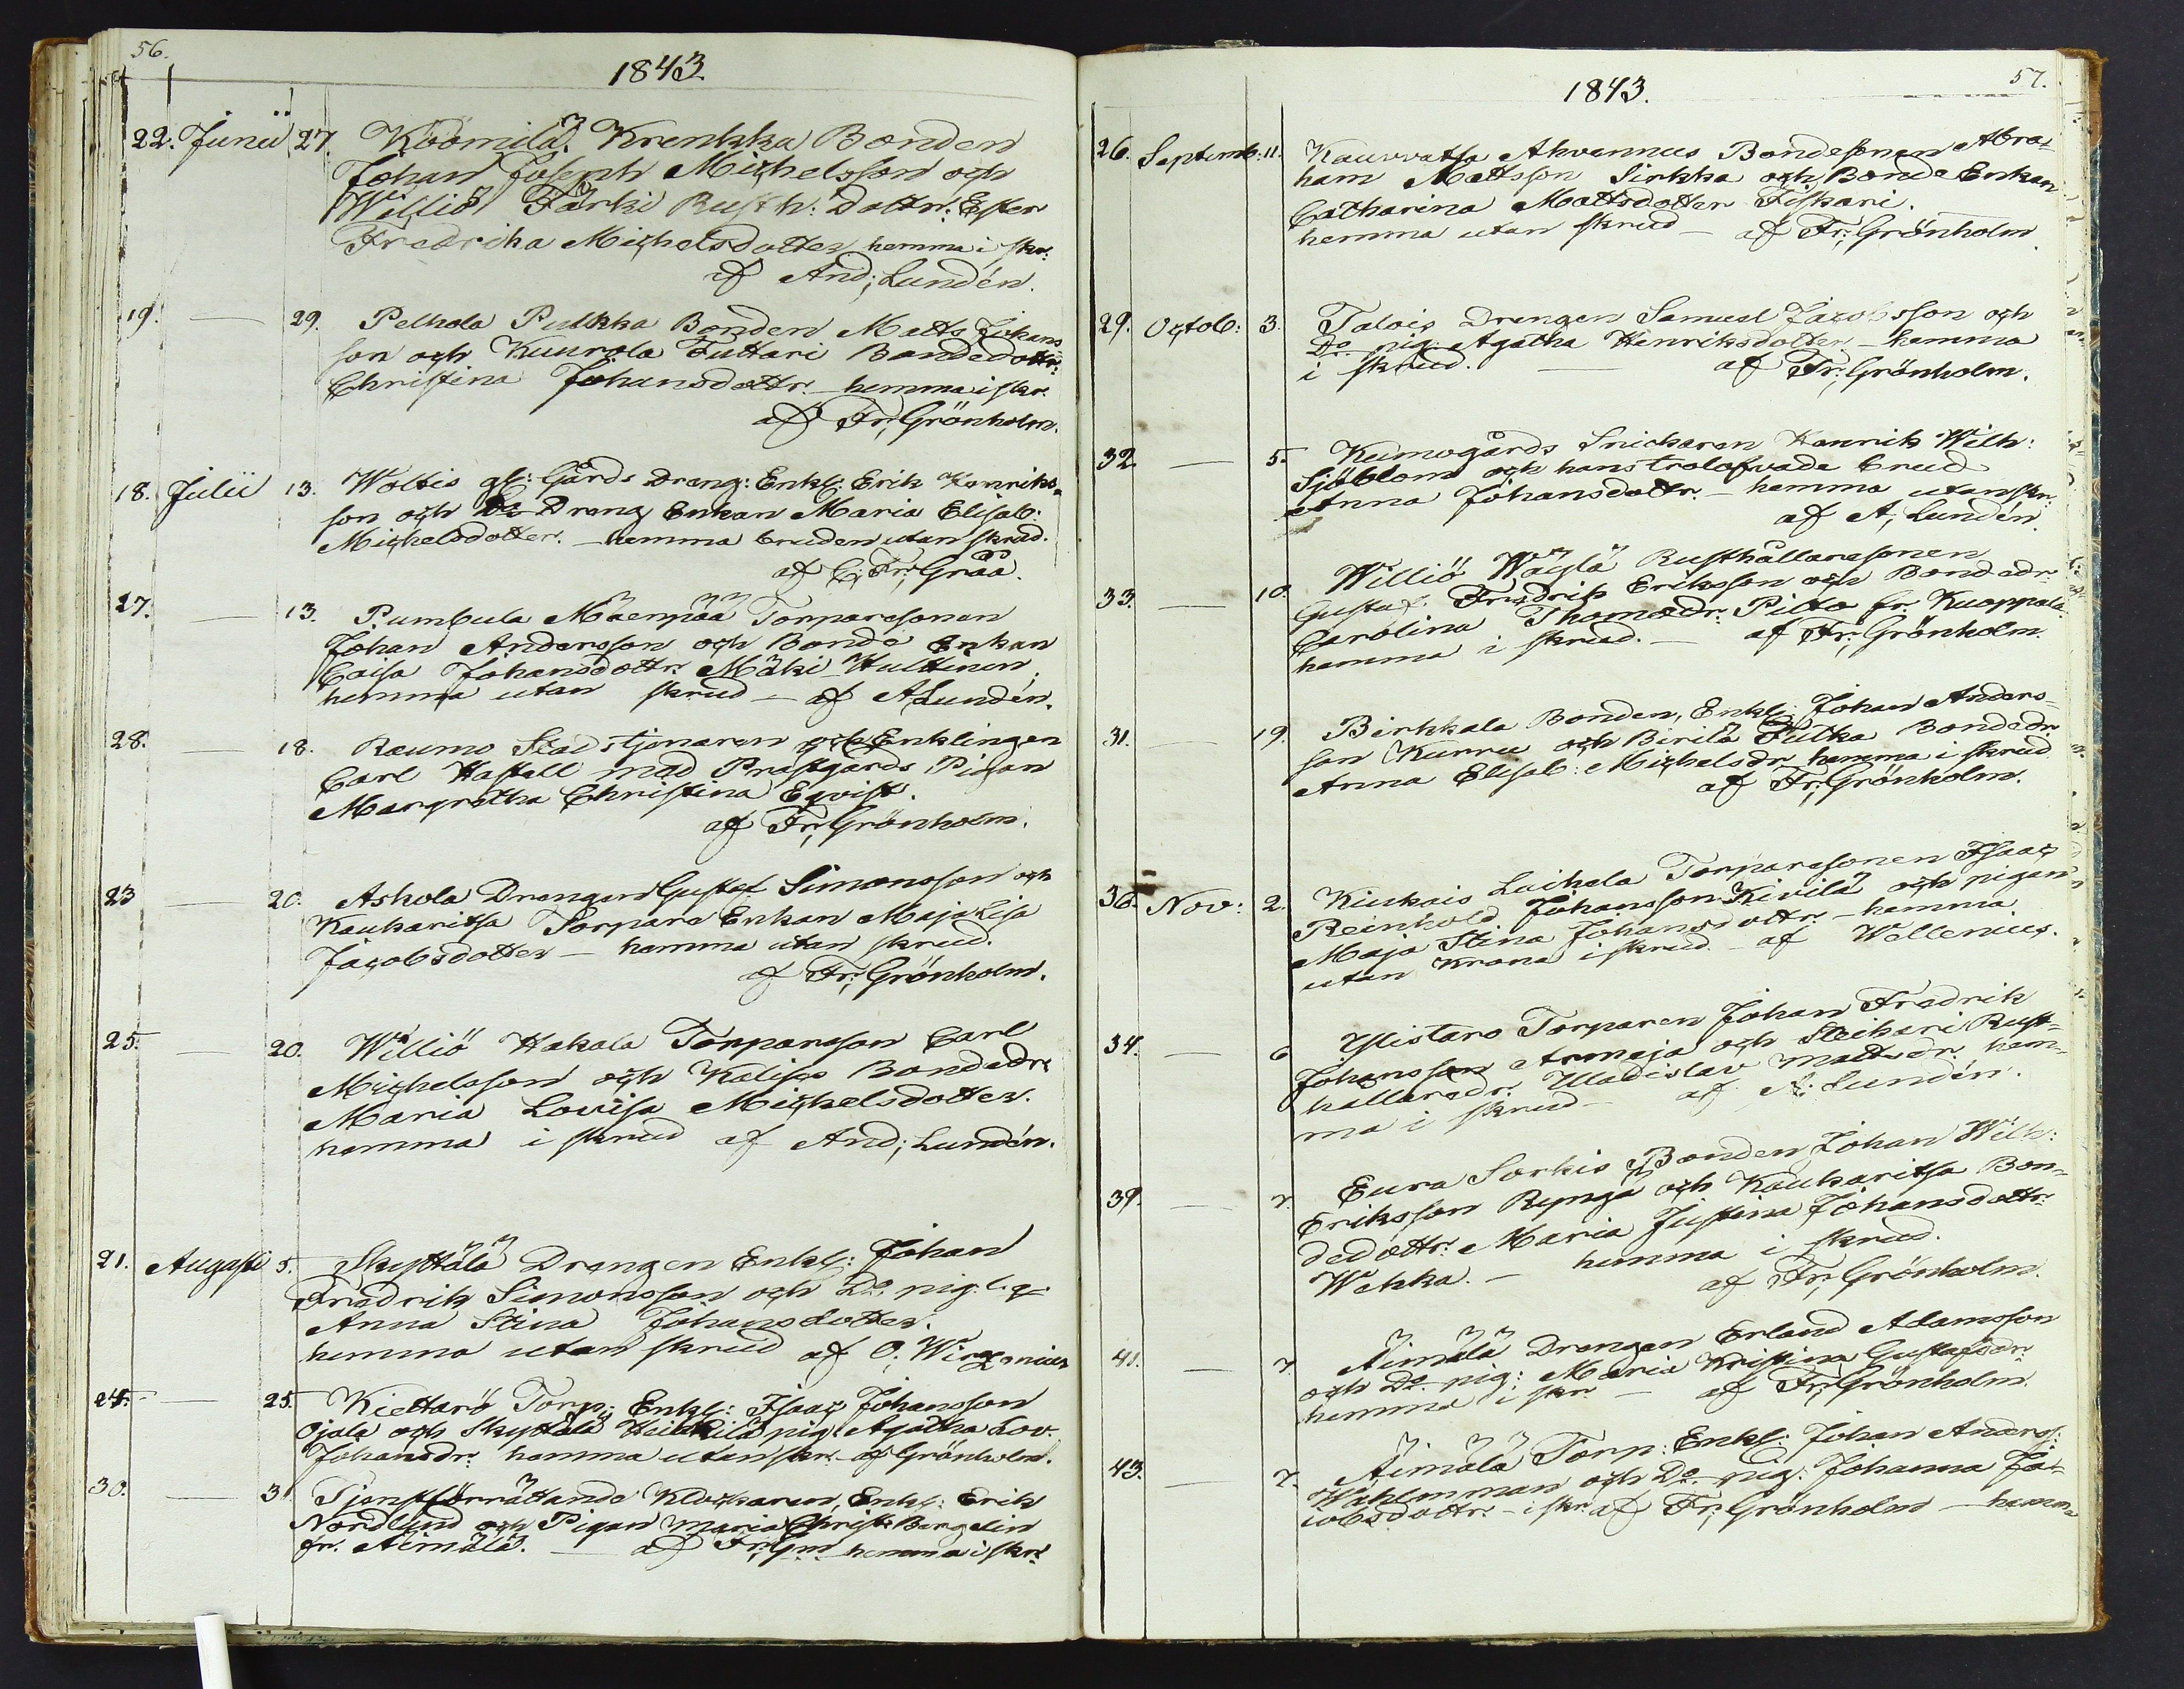 56.
1843
22. Junii 27 Köömilä Krenkka Bonden
Johan Joseph Michelsson och
Williö Järki Rusth: Dottr: Ester
Fredrika Michelsdotter hemma i skr:
af And; Lundén.
19. — 29. Pelhola Pulkka Bonden Matts Johans
son och Kuurola Tuttari Bondedottr:
Christina Johansdottr. hemma i skr.
af Fr; Grönholm.
18. Julii 13. Woltis gl: Gårds Dräng: Enkl: Erik Henriks-
son och Do Dräng Enkan Maria Elisab:
Michelsdotter. — hemma bruden utan skrud.
af C; Fr; Gråå.
27. — 13. Pumbula Mäenpää Torparesonen
Johan Andersson och Bonde Enkan
Caisa Johansdottr. Mäki Hulttinen
hemma utan skrud — af A; Lundén.
28. — 18. Raumo Stadstjenaren och Enklingen
Carl Hastell med Prostgårds Pigan
Margretha Christina Eqvist.
af Fr; Grönholm.
23 — 20. Askola Drängen Gustaf Simonsson och
Kaukaritsa Torpare Enkan Maja Lisa
Jacobsdotter — hemma utan skrud.
af Fr; Grönholm.
25. — 20. Williö Hakala Torpareson Carl
Michelsson och Kalisis Bondedr:
Maria Lovisa Michelsdotter.
hemma i skrud af And; Lundén.
21. Augusti 5. Skyttälä Drängen Enkl: Johan
Fredrik Simonsson och Do. pig. l. q.
Anna Stina Johansdotter.
hemma utan skrud af O; Wirzenius
24. — 25. Kiettarö Torp; Enkl: Isaac Johansson
Ojala och Skyttälä Heikkilä pig. Agatha Lov.
Johansdr: hemma utan skr. af Grönholm.
30. — 31 Tjenstförrättande Klockaren, Enkl: Erik
Nordlund och Pigan Maria Christ: Bergelin
fr. Äimälä. — af Fr; Gm hemma i skr.
57.
1843.
26. Septemb: 11. Kauvvatsa Ahvennus Bondesonen Abra-
ham Mattsson Sirkka och Bonde Enkan
Catharina Mattsdotter Fiskari.
hemma utan skrud — af Fr; Grönholm
29. Octob: 3. Talois Drengen Samuel Jacobsson och
Do pig: Agatha Henriksdotter — hemma
i skrud. — af Fr; Grönholm.
32 — 5. Kumogårds Snickaren Henrik Wilh:
Sjöblom och hans trolofvade brud
Anna Johansdottr. — hemma utan skr:
af A; Lundén.
33. — 10. Williö Wäylä Rusthållaresonen
Gustaf Fredrik Eriksson och Bondedr:
Carolina Thomædr: Pilto fr. Kuoppala
hemma i skrud. — af Fr; Grönholm.
31. — 19. Birkkala Bonden, Enkl: Johan Anders-
son Kurru och Birilä Tulka Bondedr.
Anna Elisab: Michelsdr hemma i skrud
af Fr; Grönholm.
36. Nov: 2. Kiukais Luikela Torparesonen Isaac
Reinhold Johansson Kivilä och pigan
Maja Stina Johansdottr. — hemma
utan Krona i skrud af Wellenius.
34. — 6 Ylistaro Torparen Johan Fredrik
Johansson Armaja och Steikari Rust-
hållaredr. Uladislav Mattsdr. hem-
ma i skrud — af A; Lundén.
39. — 7. Eura Sorkis Bonden Johan Wilh:
Eriksson Ryngä och Kaukaritsa Bon-
dedottr: Maria Justina Johansdottr:
Wehka. — hemma i skrud.
af Fr; Grönholm.
41. — 7. Äimälä Drengen Erland Adamsson
och Do. pig: Maria Kristina Gustafsdr
hemma i skr. — af Fr; Grönholm.
43. — 7. Äimälä Torp: Enkl: Johan Anderss:
Wahlmman och Do. pig: Johanna Ja-
cobsdottr: — i skr. af Fr; Grönholm — hemma